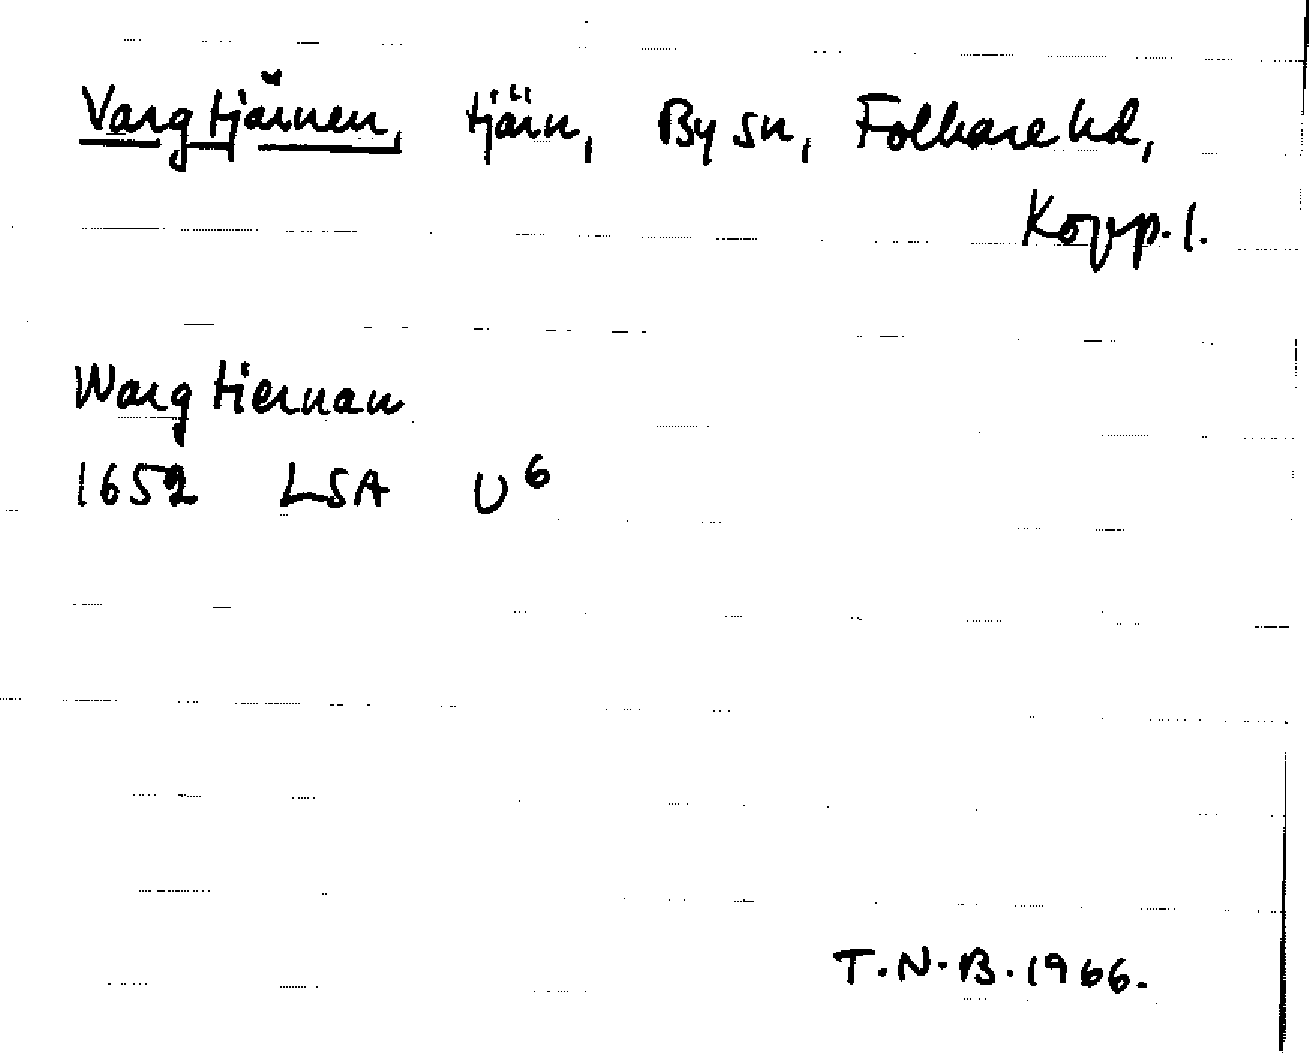 Vargtjärnen, tjärn, By sn, Folkare hd,
Kopp. l.
Wargtiernan
1652 LSA U⁶
T.N.B. 1966.